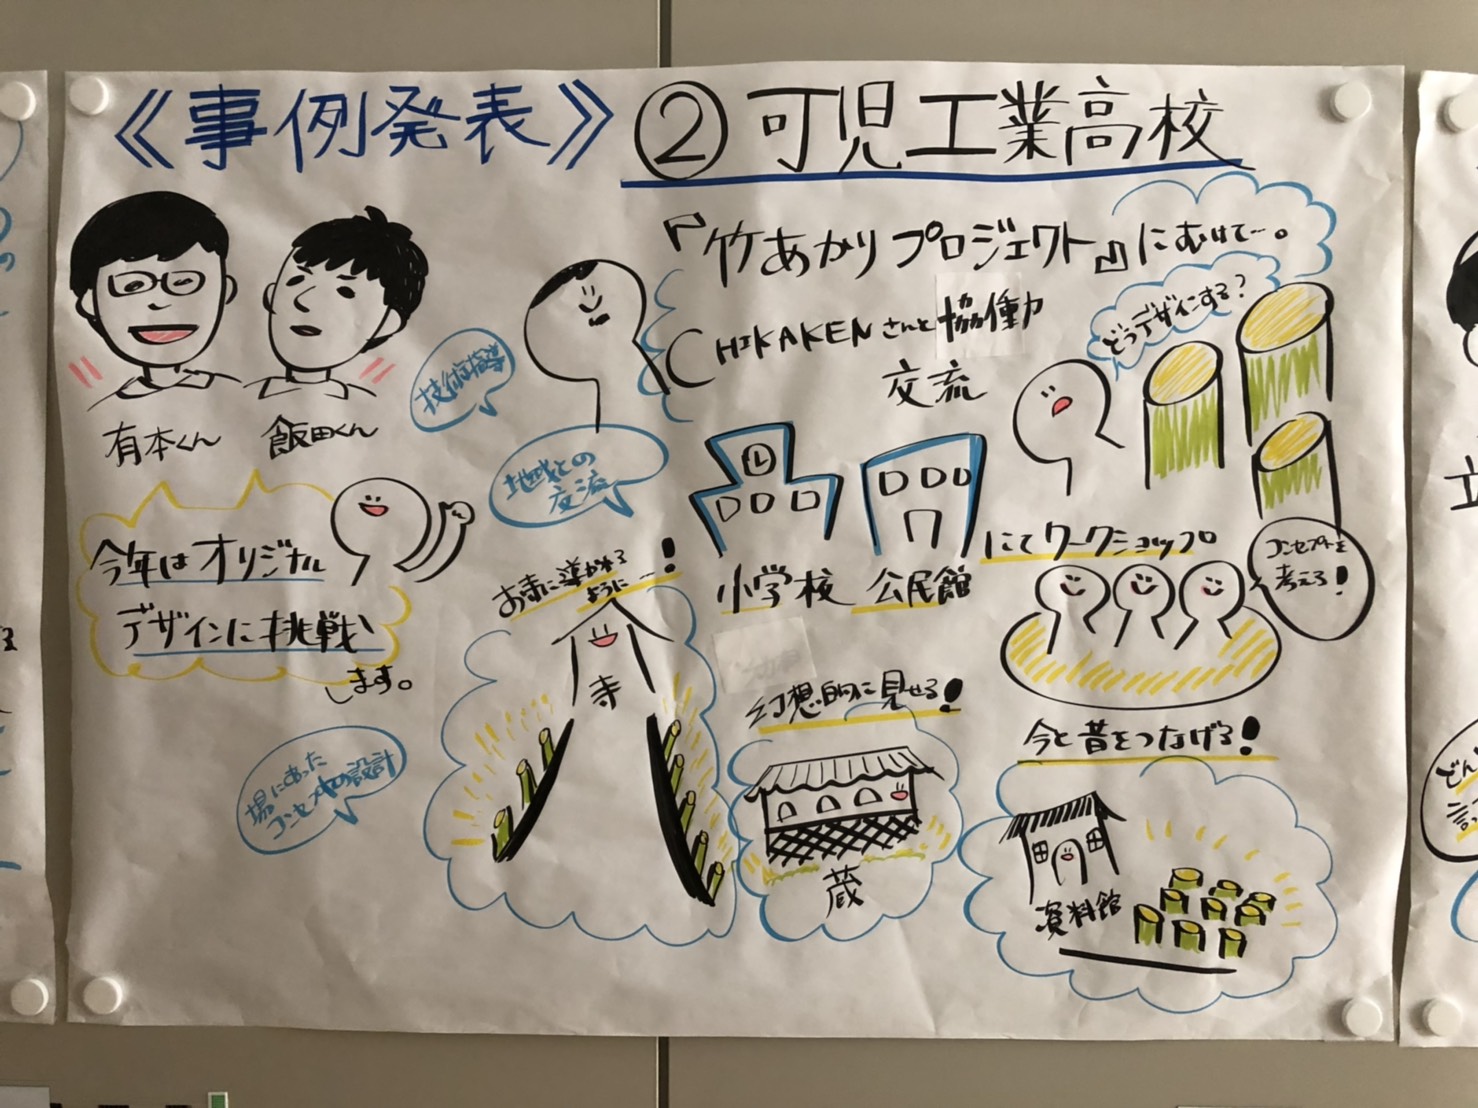 《事例発表》 ②可児工業高校
『竹あかりプロジェクト』にむけて…。
CHIKAKENさんと協働
交流
どうデザインする?
技術指導
地域との
交流
有本くん
飯田くん
今年はオリジナル
デザインに挑戦
します。
小学校 公民館
にてワークショップ
コンセプトを
考える!
お寺に導かれる
ように…!
寺
幻想的に見せる!
蔵
今と昔をつなげる!
資料館
場にあった
コンセプトの設計
どん
言っ
立